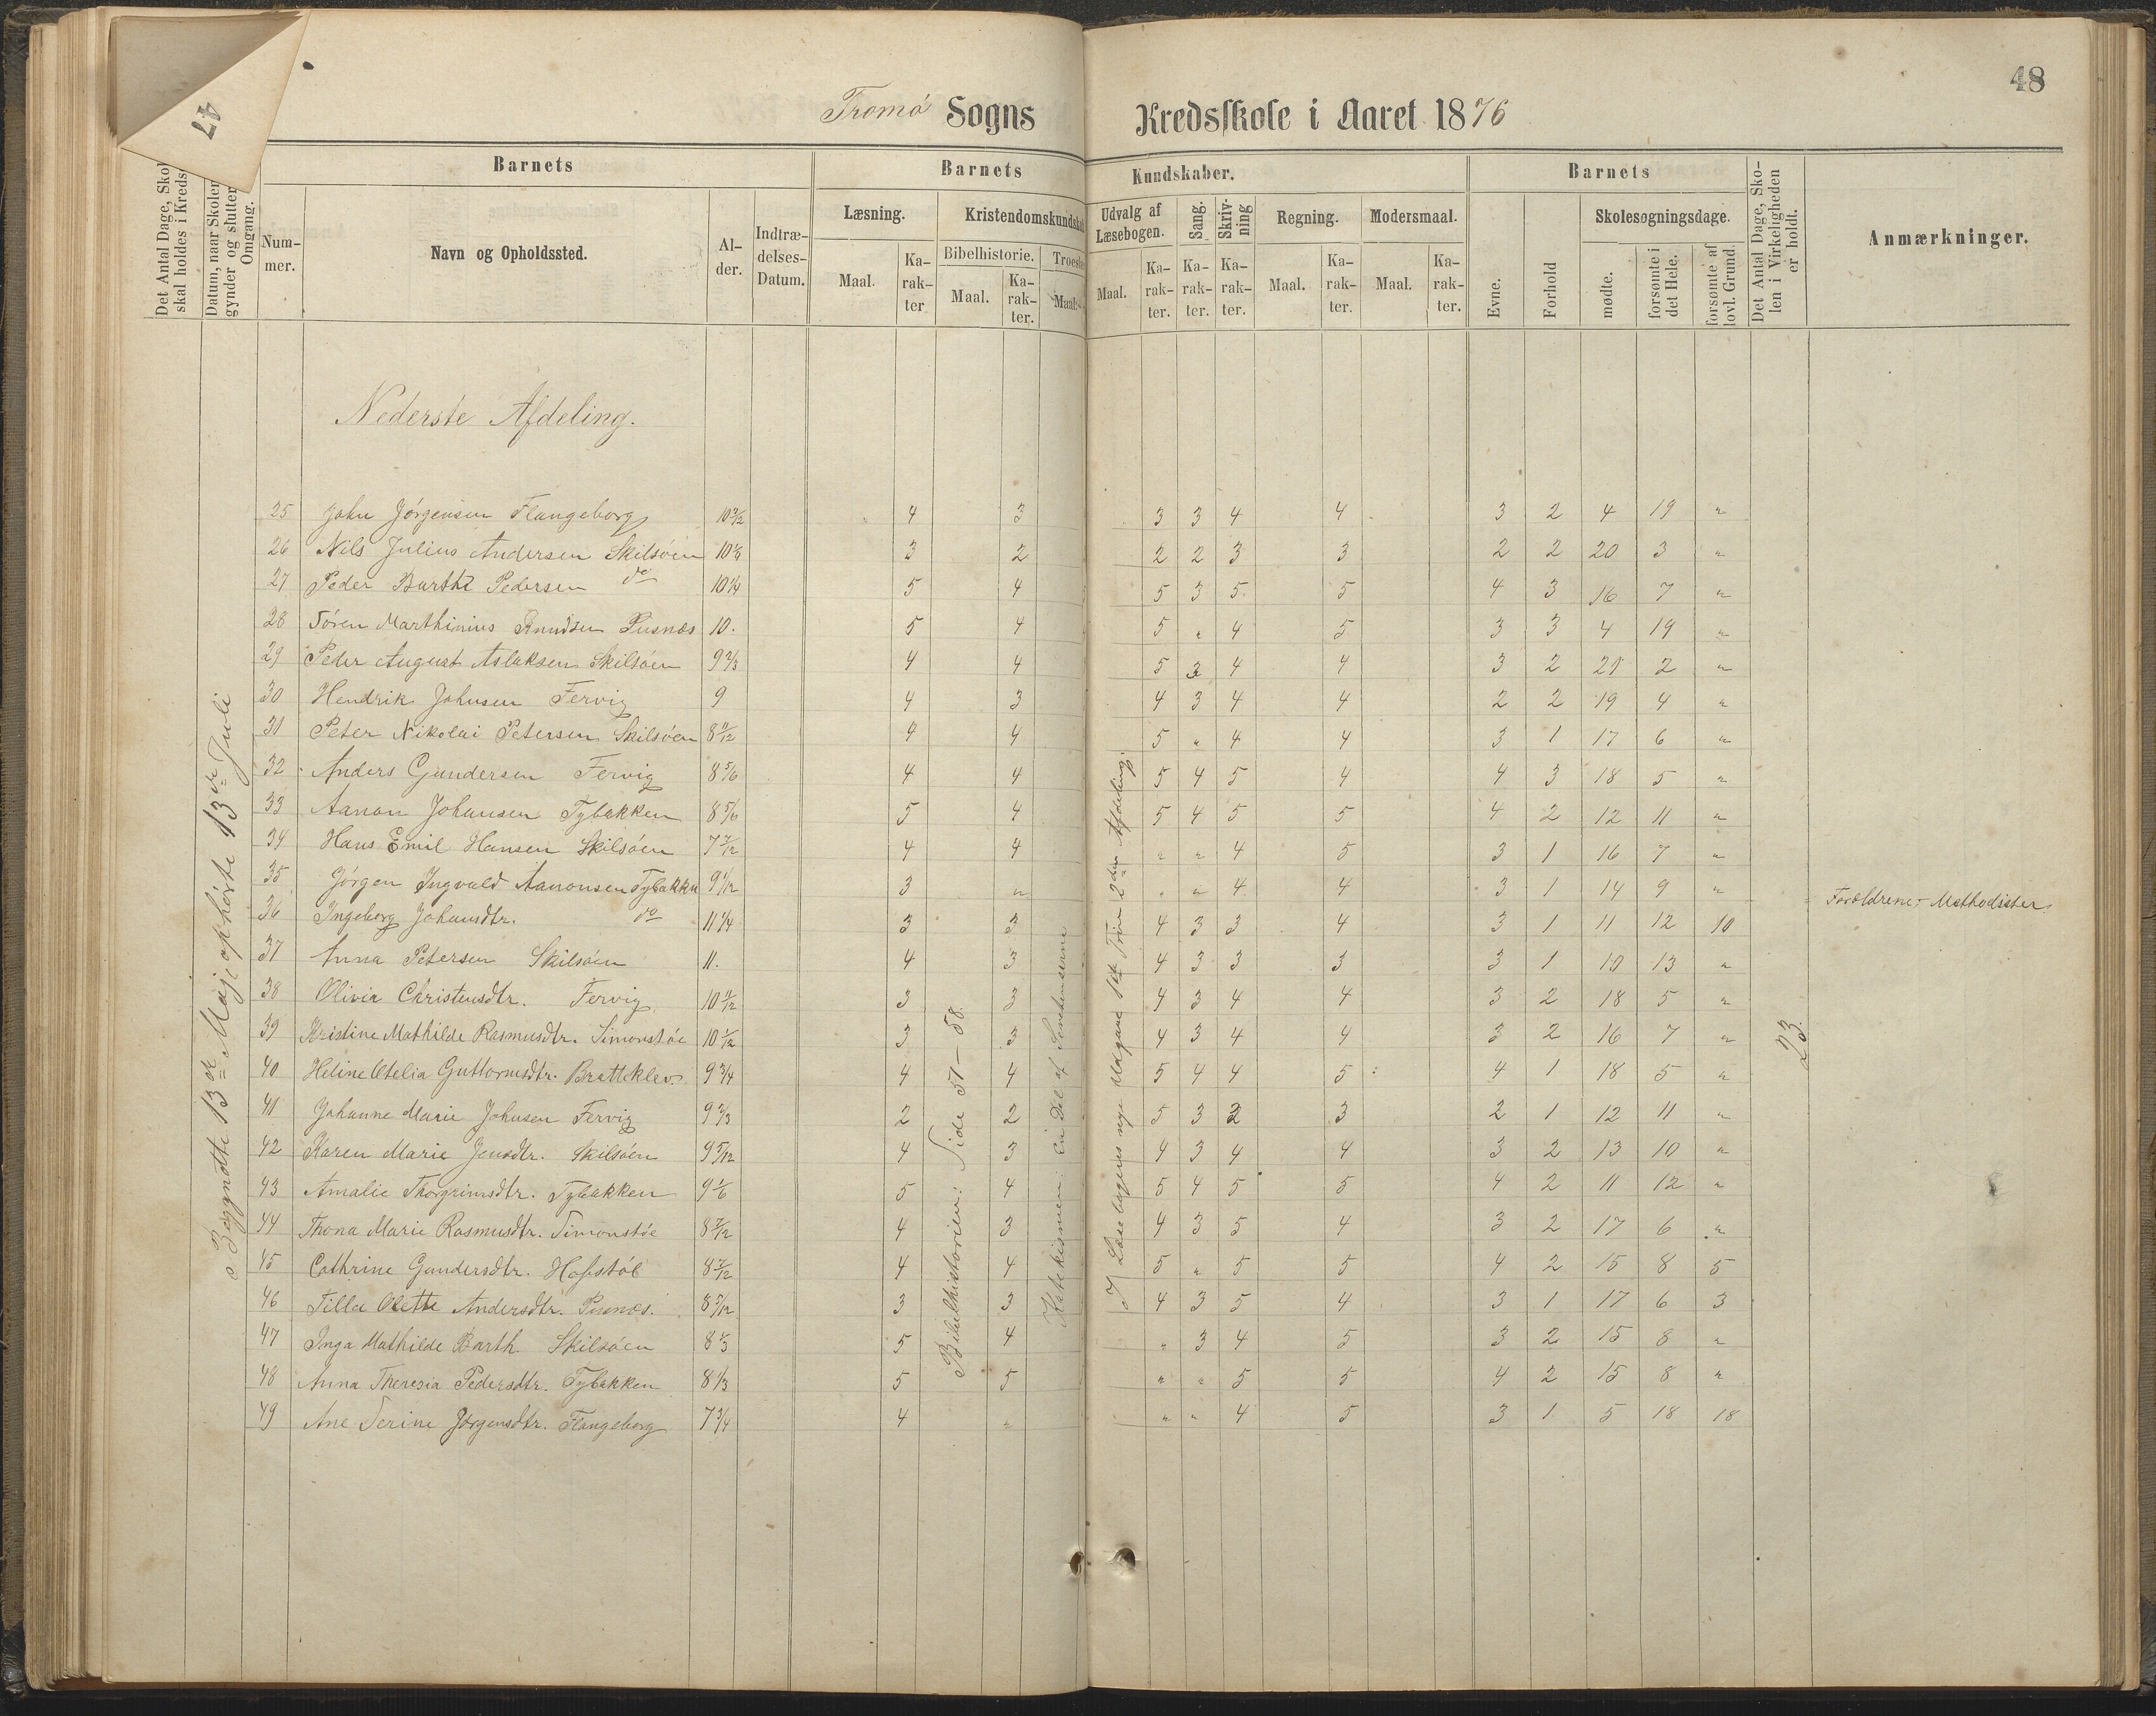 47
48
Tromø Sogns Kredsskole i Aaret 1876
Det Antal Dage, Skol
skal holdes i Kreds
Datum, naar Skolen
gynder og slutter
Omgang.
Barnets
Num-
mer.
Navn og Opholdssted.
Al-
der.
Indtræ-
delses-
Datum.
Barnets Kundskaber.
Læsning.
Maal.
Ka-
rak-
ter
Kristendomskundska
Bibelhistorie.
Maal.
Ka-
rak-
ter.
Troes
Maal.
Udvalg af
Læsebogen.
Maal.
Ka-
rak-
ter.
Sang.
Ka-
rak-
ter.
Skriv-
ning
Ka-
rak-
ter.
Regning.
Maal.
Ka-
rak-
ter.
Modersmaal.
Maal.
Ka-
rak-
ter.
Barnets
Evne.
Forhold
Skolesøgningsdage.
mødte.
forsømte i
det Hele.
forsømte af
lovl. Grund.
Det Antal Dage, Sko-
len i Virkeligheden
er holdt.
Anmærkninger.
Nederste Afdeling.
Begyndte 13de Maj, ophørte 13de Juli
25 John Jørgensen Flangeborg 10 3/12 4 3 3 3 4 4 3 2 4 19 "
26 Nils Julius Andersen Skilsøen 10 1/4 3 2 2 2 3 3 2 2 20 3 "
27 Peder Barth Pedersen do 10 1/4 5 4 5 3 5 5 4 3 16 7 "
28 Søren Marthinius Knudsen Pusnæs 10. 5 4 5 " 4 5 3 3 4 19 "
29 Peder August Aslaksen Skilsøen 9 2/3 4 4 5 3 4 4 3 2 21 2 "
30 Hendrik Johnsen Fervig 9 4 3 4 3 4 4 2 2 19 4 "
31 Peter Nikolai Petersen Skilsøen 8 11/12 4 4 5 " 4 4 3 1 17 6 "
32 Anders Gundersen Fervig 8 5/6 4 4 5 4 5 4 4 3 18 5 "
33 Aanon Johansen Tybakken 8 5/6 5 4 5 4 5 5 4 2 12 11 "
34 Hans Emil Hansen Skilsøen 7 7/12 4 4 " " 4 5 3 1 16 7 "
35 Jørgen Ingvald Aanonsen Tybakken 9 1/12 3 " " " 4 4 3 1 14 9 "
36 Ingeborg Johansdtr. do 11 1/4 3 3 4 3 3 4 3 1 11 12 10 Forældrene Methodister
37 Anna Petersen Skilsøen 11. 4 3 4 3 3 3 3 1 10 13 "
38 Olivia Christensdtr. Fervig 10 11/12 3 3 4 3 4 4 3 2 18 5 "
39 Kristine Mathilde Rasmusdtr. Simonstøe 10 1/12 3 3 4 3 4 4 3 2 16 7 "
40 Heline Otelia Guttormsdtr. Bratteklev 9 3/4 4 4 5 4 4 5 4 1 18 5 "
41 Johanne Marie Johnsen Fervig 9 2/3 2 2 5 3 2 3 2 1 12 11 "
42 Karen Marie Jensdtr. Skilsøen 9 5/12 4 3 4 3 4 4 3 2 13 10 "
43 Amalie Thorgrimsdtr. Tybakken 9 1/6 5 4 5 4 5 5 4 2 11 12 "
44 Thona Marie Rasmusdtr. Simonstøe 8 7/12 4 3 4 3 5 4 3 2 17 6 "
45 Cathrine Gundersdtr. Hofstøl 8 7/12 4 4 5 " 5 5 4 2 15 8 5
46 Tilla Olette Andersdtr. Pusnæs. 8 5/12 3 3 4 3 5 4 3 1 17 6 3
47 Inga Mathilde Barth. Skilsøen 8 1/3 5 4 " 3 4 5 3 2 15 8 "
48 Anna Theresia Pedersdtr. Tybakken 8 1/3 5 5 " " 5 5 4 2 15 8 "
49 Ane Serine Jørgensdtr. Flangeborg 7 3/4 4 " " " 4 5 3 1 5 18 18
Bibelhistorien: Side 51-88.
Katekismen: En Del af
I Læsebogens nye Udgave 1ste Trin 2den Afdeling.
23.